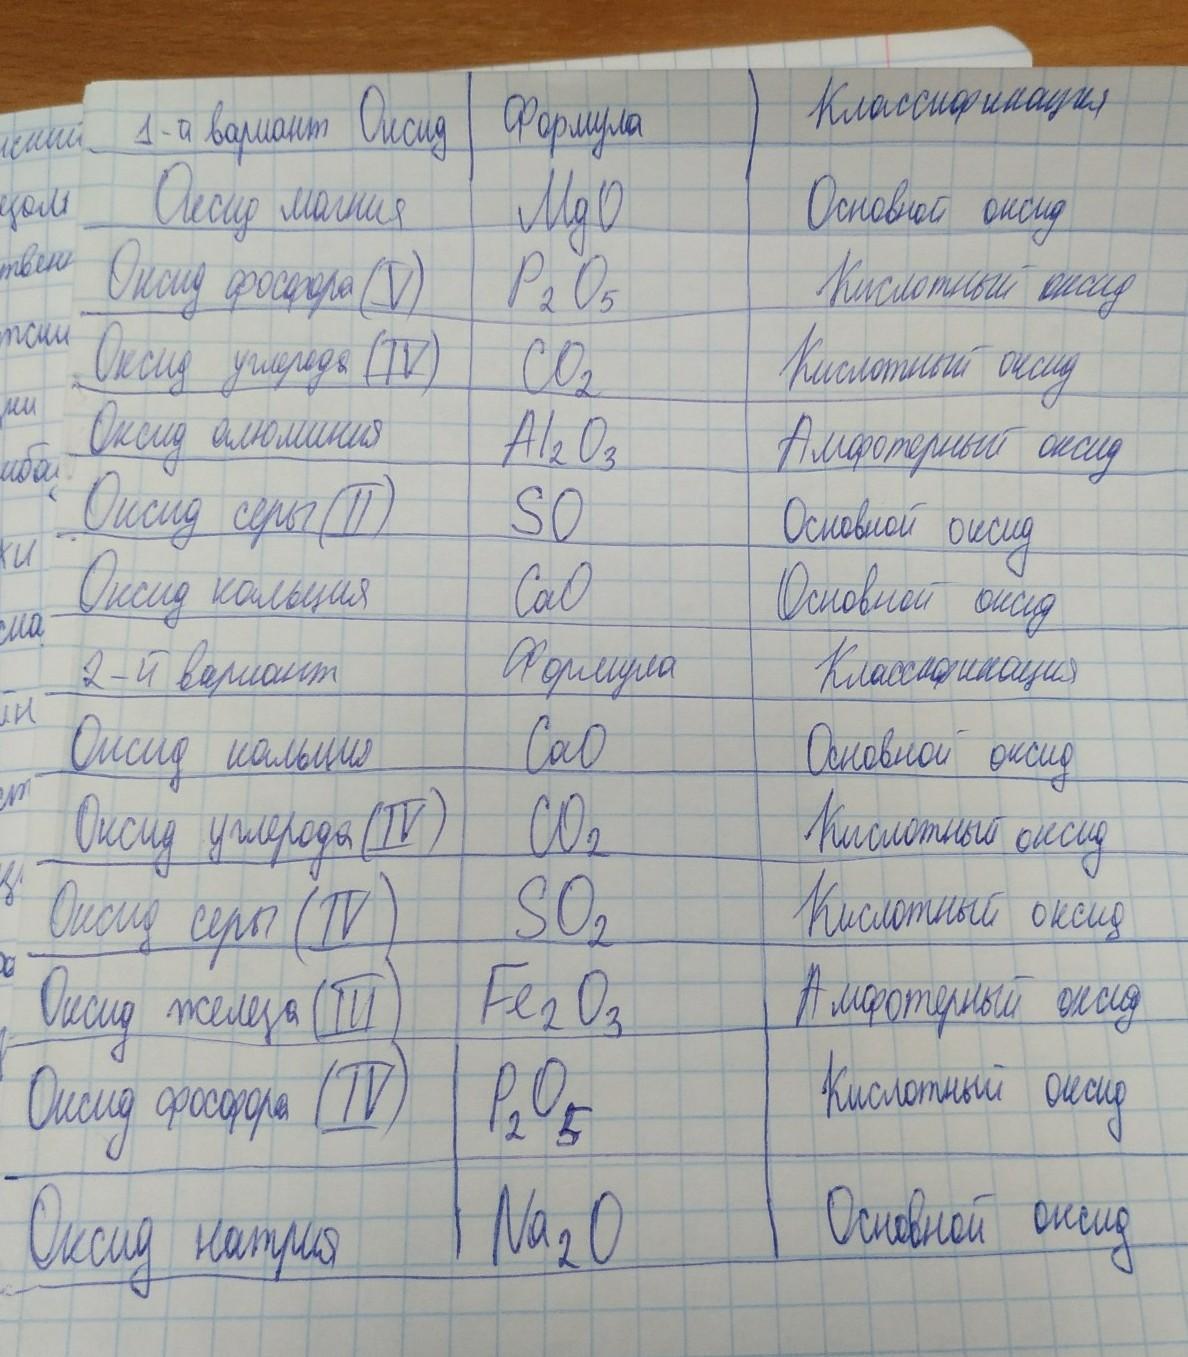 1-й вариант Оксид Формула Классификация
Оксид магния MgO Основной оксид
Оксид фосфора (V) P2O5 Кислотный оксид
Оксид углерода (IV) CO2 Кислотный оксид
Оксид алюминия Al2O3 Амфотерный оксид
Оксид серы (II) SO Основной оксид
Оксид кальция CaO Основной оксид
2-й вариант Формула Классификация
Оксид кальция CaO Основной оксид
Оксид углерода (IV) CO2 Кислотный оксид
Оксид серы (IV) SO2 Кислотный оксид
Оксид железа (III) Fe2O3 Амфотерный оксид
Оксид фосфора (IV) P2O5 Кислотный оксид
Оксид натрия Na2O Основной оксид